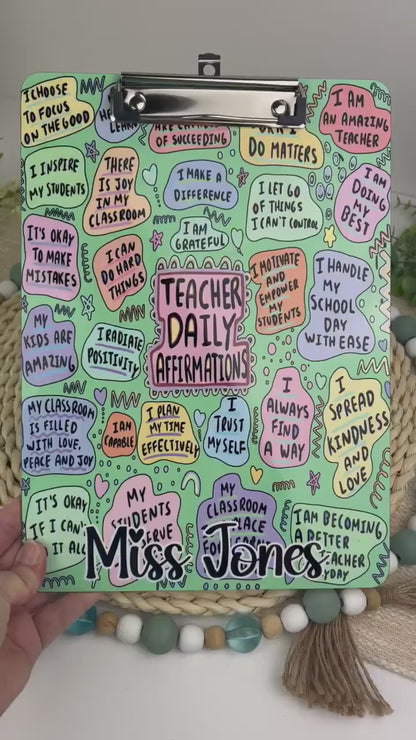 I CHOOSE
TO FOCUS
ON THE GOOD
LEARN
OF SUCCEEDING
DO MATTERS
I AM
AN AMAZING
TEACHER
I INSPIRE
MY STUDENTS
THERE
IS JOY
IN MY
CLASSROOM
I MAKE A
DIFFERENCE
I LET GO
OF THINGS
I CAN'T CONTROL
I AM
DOING
MY
BEST
IT'S OKAY
TO MAKE
MISTAKES
I CAN
DO HARD
THINGS
I AM
GRATEFUL
I MOTIVATE
AND
EMPOWER
MY
STUDENTS
I HANDLE
MY
SCHOOL
DAY
WITH EASE
TEACHER
DAILY
AFFIRMATIONS
MY
KIDS ARE
AMAZING
I RADIATE
POSITIVITY
MY CLASSROOM
IS FILLED
WITH LOVE,
PEACE AND JOY
I AM
CAPABLE
I PLAN
MY TIME
EFFECTIVELY
I
TRUST
MYSELF
I
ALWAYS
FIND
A WAY
I
SPREAD
KINDNESS
AND
LOVE
IT'S OKAY
IF I CAN'T
IT ALL
MY
MY
CLASSROOM
I AM BECOMING
A BETTER
Miss Jones